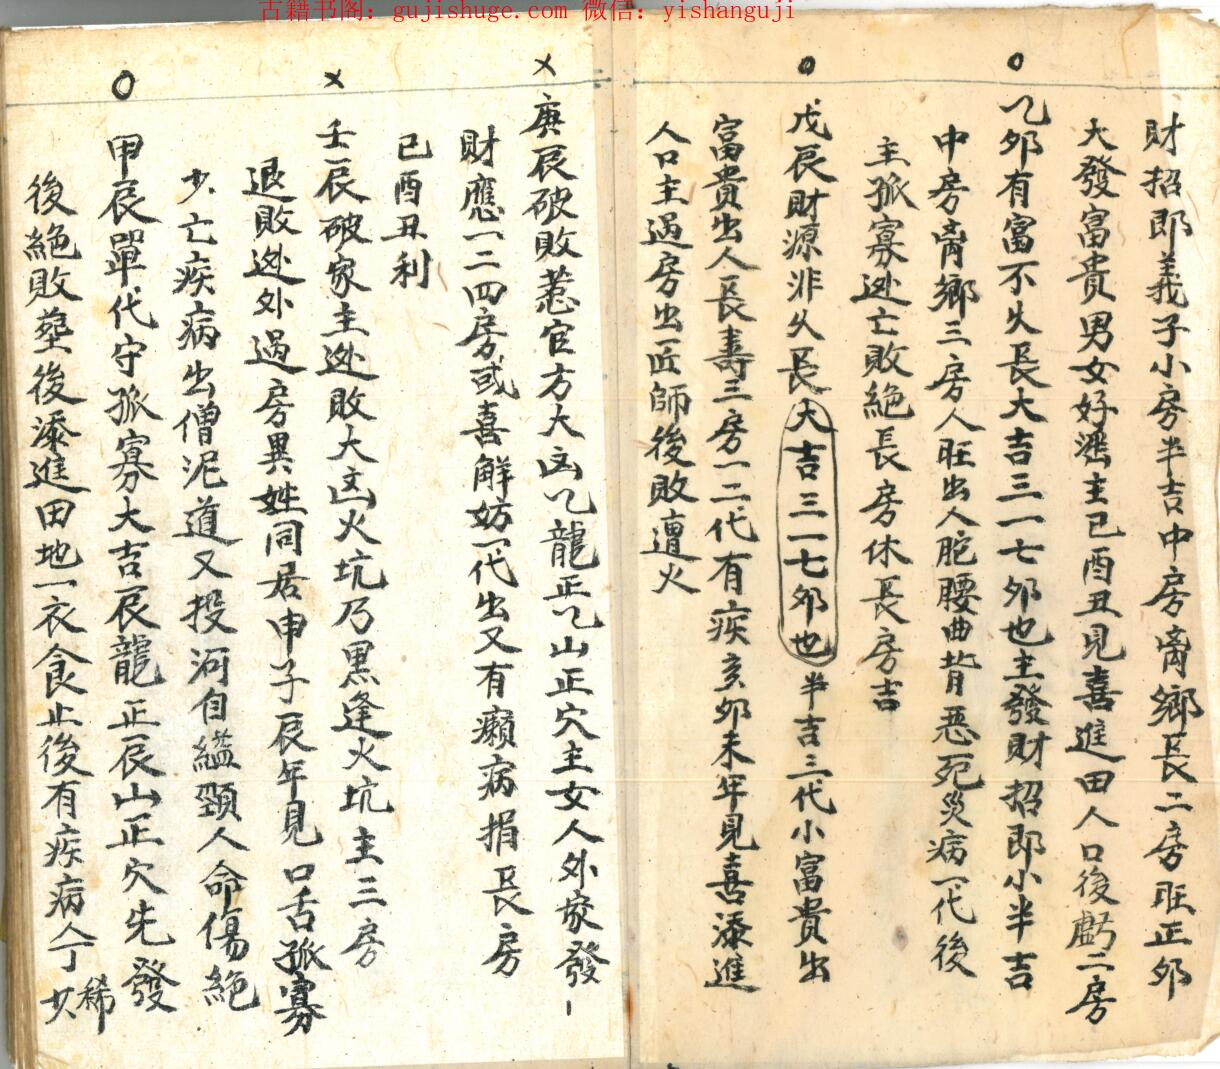 古籍书阁：gujishuge.com 微信：yishanguji
財招郎義子小房半吉中房离鄉長二房旺正卯
大發富貴男女好滛主巳酉丑見喜進田人口後虧二房
乙卯有富不久長大吉三一七卯也主發財招郎小半吉
中房离鄉三房人旺出人駝腰曲背惡死災病一代後
主孤寡迯亡敗絕長房休長房吉
戊辰財源非久長大吉三一七卯也半吉三代小富貴出
富貴出人長壽三房一二代有疾亥卯未年見喜添進
人口主過房出匠師後敗遭火
庚辰破敗惹官方大凶乙龍正乙山正穴主女人外家發
財應一二四房或喜解妨一代出又有癩病捐長房
巳酉丑利
壬辰破家主迯敗大凶火坑乃黑逢火坑主三房
退敗迯外過房異姓同居申子辰年見口舌孤寡
少亡疾病出僧泥道又投河自縊頸人命傷絕
甲辰單代守孤寡大吉辰龍正辰山正穴先發
後絕敗塟後添進田地一衣食止後有疾病人丁稀少